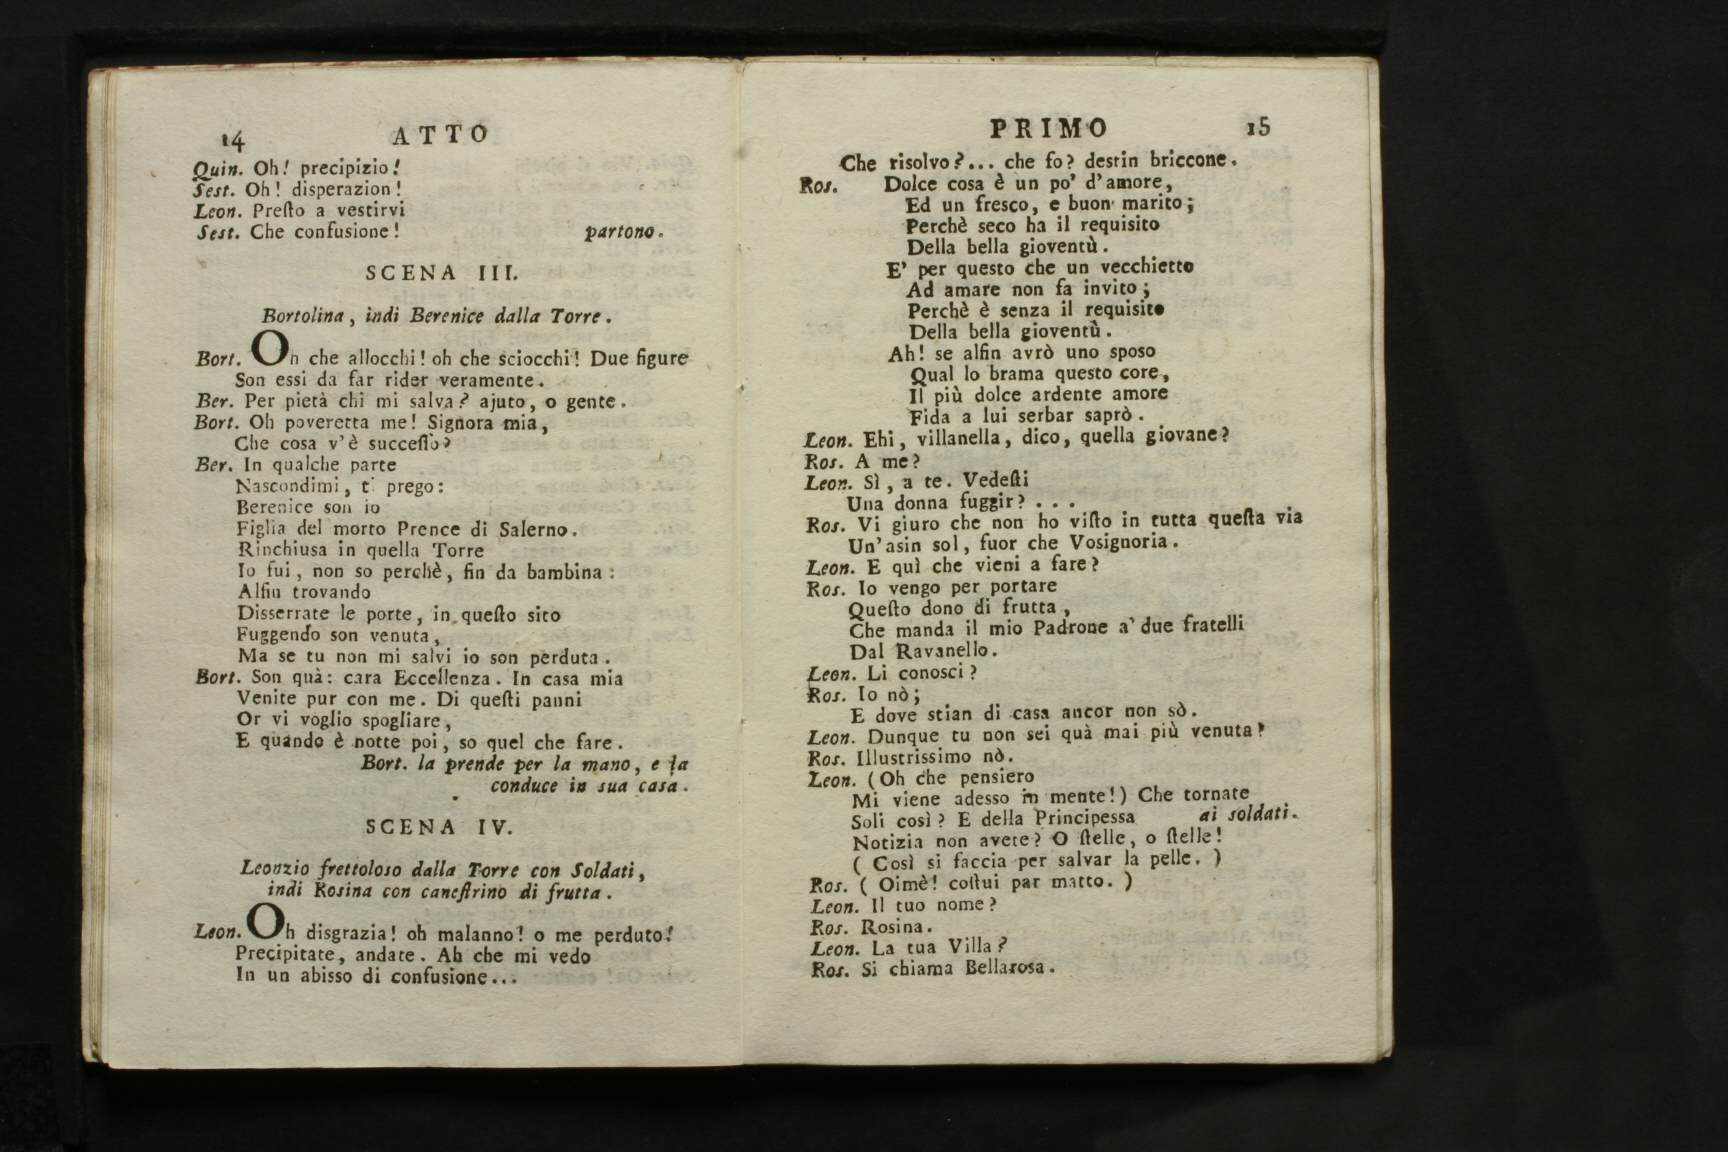 14 ATTO
Quin. Oh! precipizio!
Sest. Oh! disperazion!
Leon. Preſto a vestirvi
Sest. Che confusione! partono.
SCENA III.
Bortolina, indi Berenice dalla Torre.
Bort. Oh che allocchi! oh che sciocchi! Due figure
Son essi da far rider veramente.
Ber. Per pietà chi mi salva? ajuto, o gente.
Bort. Oh poveretta me! Signora mia,
Che cosa v'è succeſſo?
Ber. In qualche parte
Nascondimi, ti prego:
Berenice son io
Figlia del morto Prence di Salerno.
Rinchiusa in quella Torre
Io fui, non so perchè, fin da bambina:
Alfin trovando
Disserrate le porte, in queſto sito
Fuggendo son venuta,
Ma se tu non mi salvi io son perduta.
Bort. Son quà: cara Eccellenza. In casa mia
Venite pur con me. Di queſti panni
Or vi voglio spogliare,
E quando è notte poi, so quel che fare.
Bort. la prende per la mano, e la
conduce in sua casa.
SCENA IV.
Leonzio frettoloso dalla Torre con Soldati,
indi Rosina con caneſtrino di frutta.
Leon. Oh disgrazia! oh malanno! o me perduto!
Precipitate, andate. Ah che mi vedo
In un abisso di confusione...
PRIMO 15
Che risolvo?... che fo? destin briccone.
Ros. Dolce cosa è un po' d'amore,
Ed un fresco, e buon marito;
Perchè seco ha il requisito
Della bella gioventù.
E' per questo che un vecchietto
Ad amare non fa invito;
Perchè è senza il requisito
Della bella gioventù.
Ah! se alfin avrò uno sposo
Qual lo brama questo core,
Il più dolce ardente amore
Fida a lui serbar saprò.
Leon. Ehi, villanella, dico, quella giovane?
Ros. A me?
Leon. Sì, a te. Vedeſti
Una donna fuggir? . . .
Ros. Vi giuro che non ho viſto in tutta queſta via
Un'asin sol, fuor che Vosignoria.
Leon. E quì che vieni a fare?
Ros. Io vengo per portare
Queſto dono di frutta,
Che manda il mio Padrone a' due fratelli
Dal Ravanello.
Leon. Li conosci?
Ros. Io nò;
E dove stian di casa ancor non sò.
Leon. Dunque tu non sei quà mai più venuta?
Ros. Illustrissimo nò.
Leon. (Oh che pensiero
Mi viene adesso in mente!) Che tornate
Soli così? E della Principessa ai soldati.
Notizia non avete? O ſtelle, o ſtelle!
( Così si faccia per salvar la pelle. )
Ros. ( Oimè! coſtui par matto. )
Leon. Il tuo nome?
Ros. Rosina.
Leon. La tua Villa?
Ros. Si chiama Bellarosa.